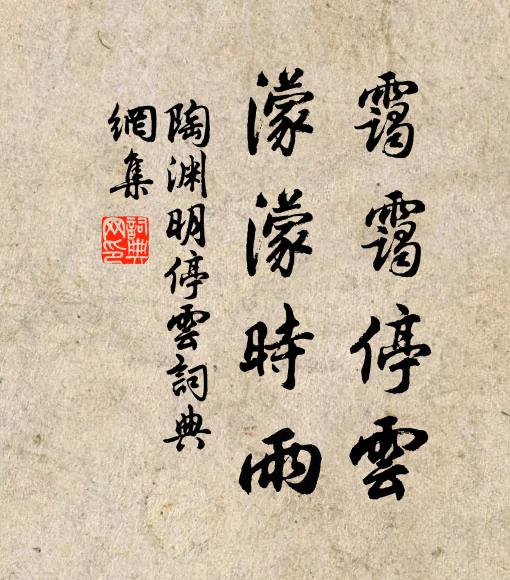 靄靄停雲
濛濛時雨
陶淵明停雲詞典
網集
詞典
网印